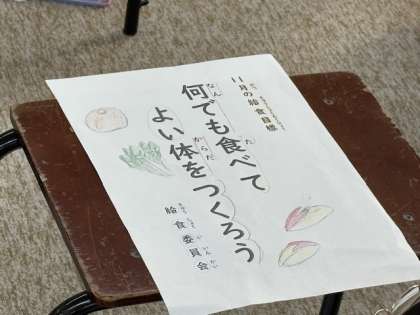 11月の給食目標
何でも食べて
よい体をつくろう
給食委員会